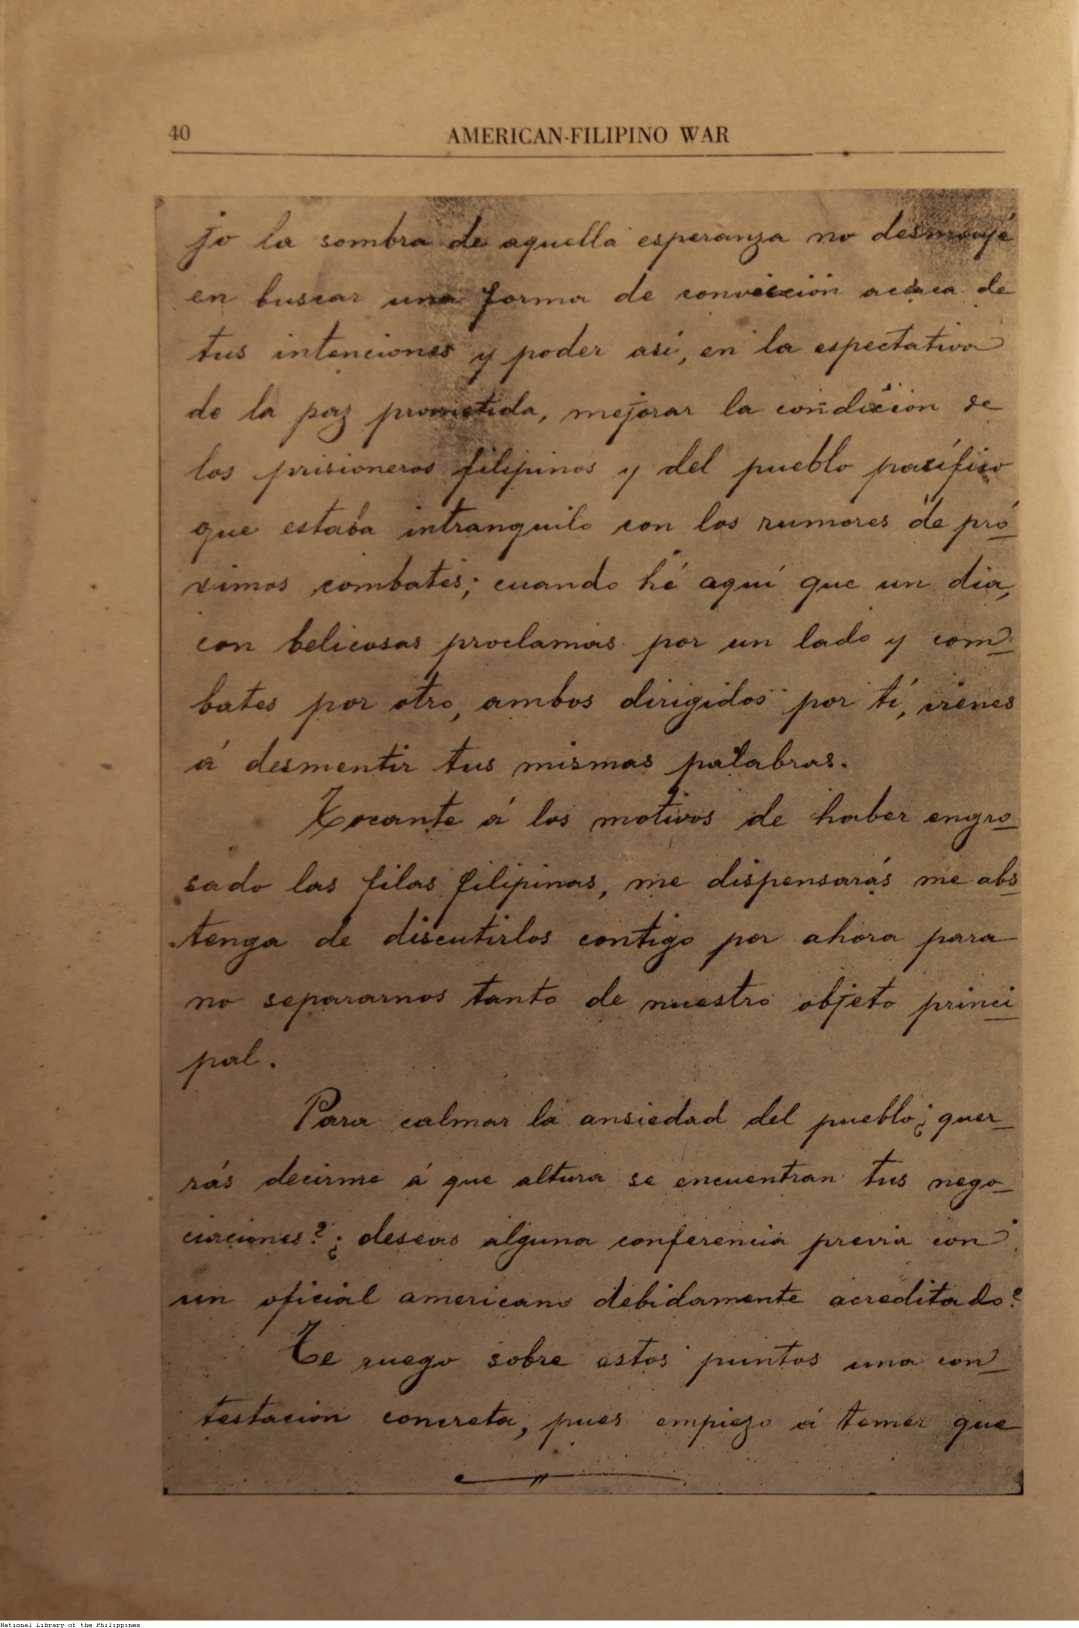 40
AMERICAN-FILIPINO WAR
jo la sombra de aquella esperanza no desmayé
en buscar una forma de convicción acerca de
tus intenciones y poder asi, en la espectativa
de la paz prometida, mejorar la condición de
los prisioneros filipinos y del pueblo pacífico
que estaba intranquilo con los rumores de pró
ximos combates; cuando hé aquí que un dia,
con belicosas proclamas por un lado y com-
bates por otro, ambos dirigidos por tí, vienes
á desmentir tus mismas palabras.
Tocante á los motivos de haber engro-
sado las filas filipinas, me dispensarás me abs
tenga de discutirlos contigo por ahora para
no separarnos tanto de nuestro objeto princi
pal.
Para calmar la ansiedad del pueblo ¿quer-
rás decirme á que altura se encuentran tus nego-
ciaciones? ¿deseas alguna conferencia previa con
un oficial americano debidamente acreditado?
Te ruego sobre estos puntos una con-
testación concreta, pues empiezo á temer que
National Library of the Philippines